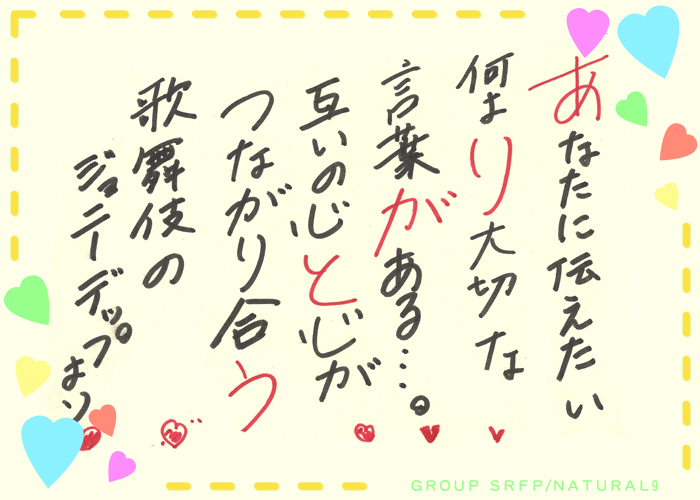 あなたに伝えたい
何より大切な
言葉がある…。
互いの心と心が
つながり合う
歌舞伎の
ジョニーデップより
GROUP SRFP/NATURAL9